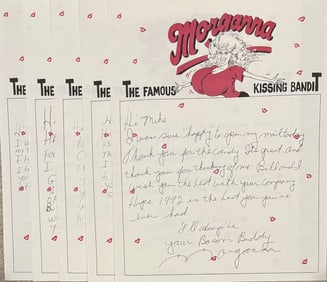 Morganna
THE THE THE THE THE FAMOUS KISSING BANDIT
Hi Mike
I was sure happy to open my mail today
Thank you for the candy. Its great and
thank you for thinking of me. Bill and I
wish you the best with your company
Hope 1992 is the best year you've
ever had
I'll always be
your Bosom Buddy,
Morganna